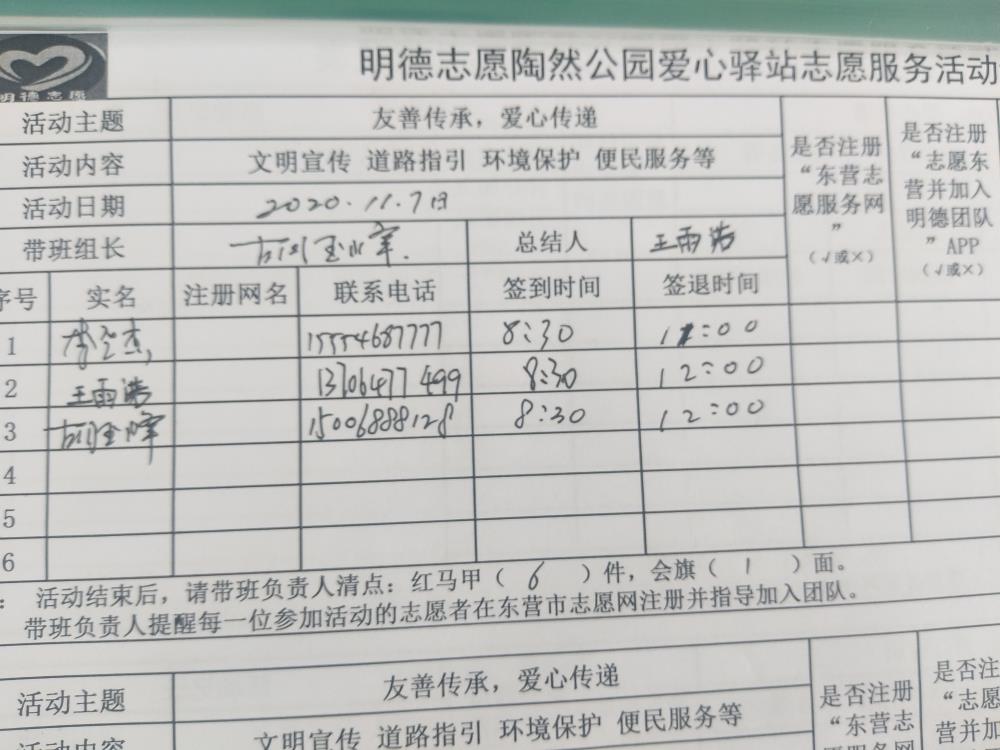 明德志愿
明德志愿陶然公园爱心驿站志愿服务活动
活动主题 友善传承，爱心传递 是否注册“东营志愿服务网”（√或×） 是否注册“志愿东营并加入明德团队”APP（√或×）
活动内容 文明宣传 道路指引 环境保护 便民服务等
活动日期 2020.11.7日
带班组长 总结人 王雨浩
序号 实名 注册网名 联系电话 签到时间 签退时间
1 15554687777 8:30 :00
2 王雨浩 13706477499 8:30 12:00
3 15006888128 8:30 12:00
4
5
6
： 活动结束后，请带班负责人清点：红马甲（ 6 ）件，会旗（ 1 ）面。
带班负责人提醒每一位参加活动的志愿者在东营市志愿网注册并指导加入团队。
活动主题 友善传承，爱心传递 是否注册“东营志愿服务网 是否注“志愿营并加
活动内容 文明宣传 道路指引 环境保护 便民服务等